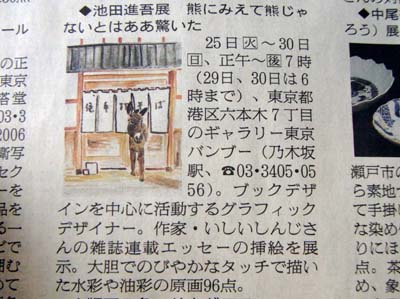 ◆池田進吾展 熊にみえて熊じゃ
ないとはああ驚いた
25日火〜30日
日、正午〜後7時
(29日、30日は6
時まで)、東京都
港区六本木7丁目
のギャラリー東京
バンブー(乃木坂
駅、☎03・3405・05
56)。ブックデザ
インを中心に活動するグラフィック
デザイナー。作家・いしいしんじさ
んの雑誌連載エッセーの挿絵を展
示。大胆でのびやかなタッチで描い
た水彩や油彩の原画96点。
◆中尾
ろう)展
瀬戸市の
ら素地で
て手掛し
な染め付
りにほ
点。茶
め、象
ール
の正
東京
答堂
03・3
2006
写
セク
ーを
品を
とで
囲む